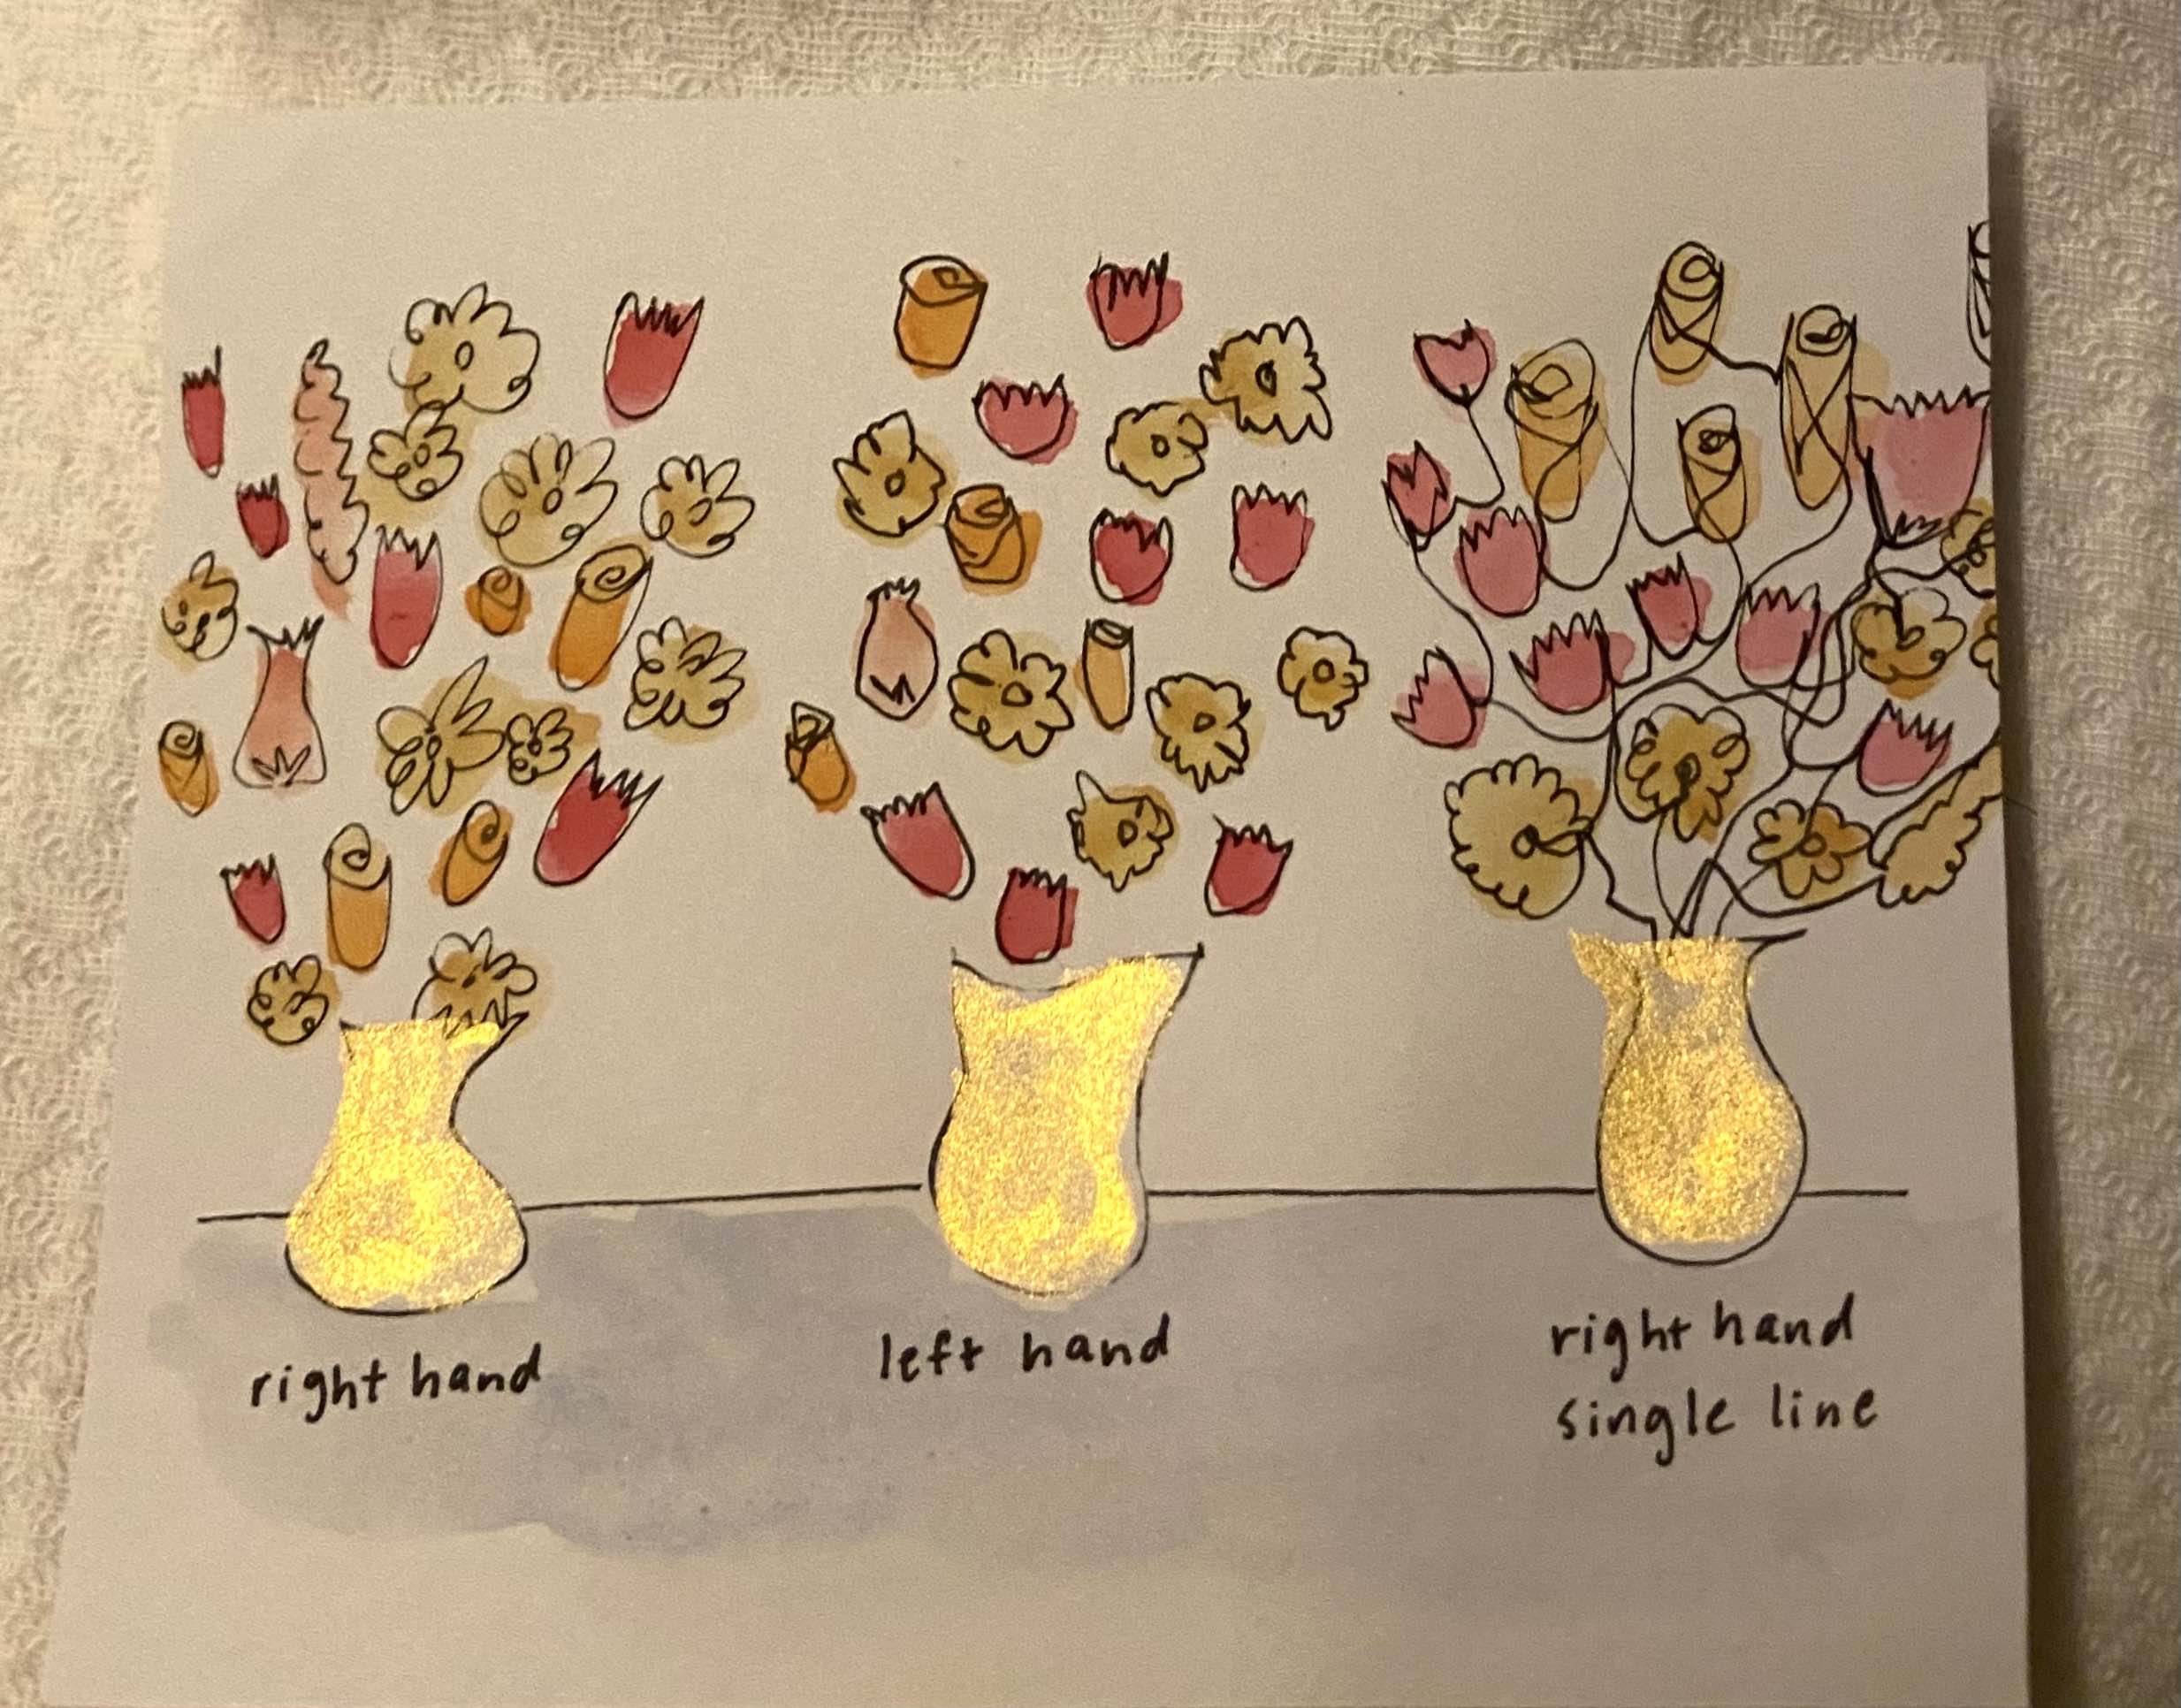 right hand
left hand
right hand
single line